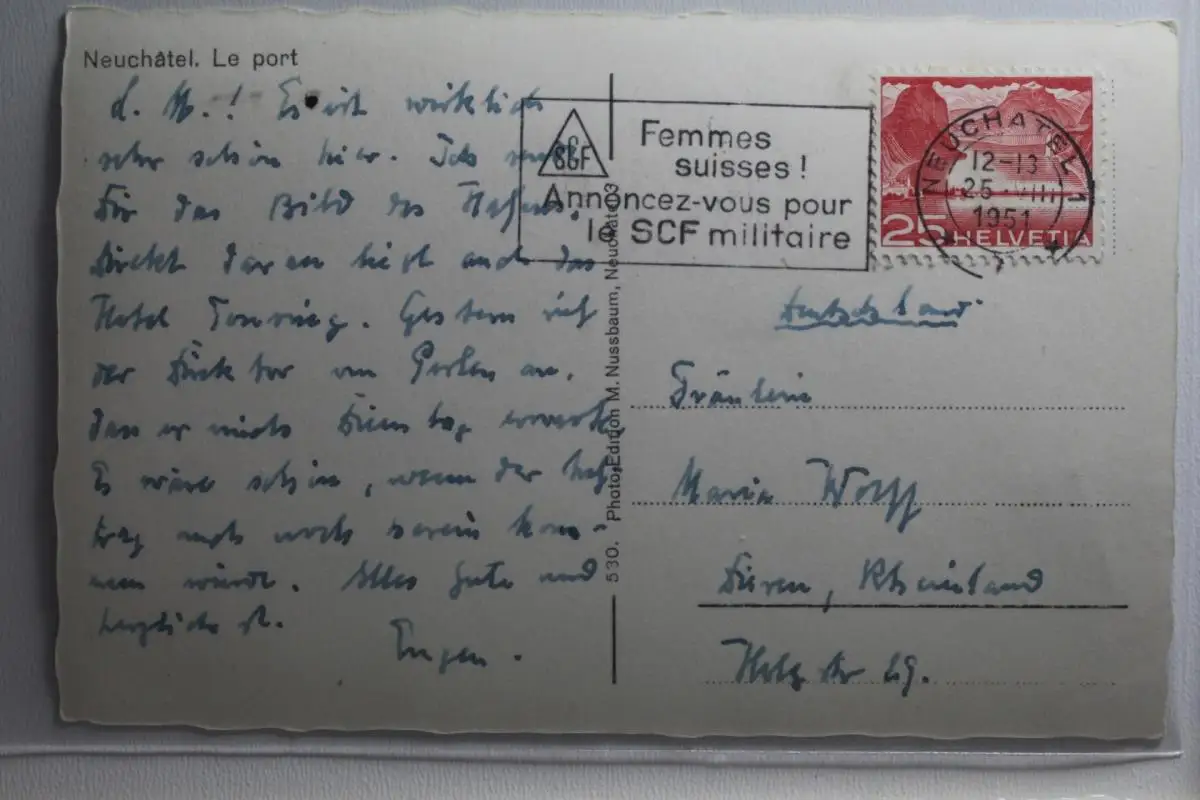 Neuchâtel. Le port
L. M.! Es ist wirklich
sehr schön hier.
für das Bild des Hafens.
Direkt daran liegt auch das
Hotel Touring. Gestern rief
der Direktor von an,
dass er mich Dienstag erwarte.
Es wäre schön, wenn der
trag noch herein kom-
men würde. Alles Gute und
herzlichst.
Eugen.
530. Photo-Edition M. Nussbaum, Neuchâtel 3
SCF
Femmes
suisses!
Annoncez-vous pour
le SCF militaire
NEUCHATEL 1
12-13
25 VIII
1951
25 HELVETIA
Deutschland
Fräulein
Maria Wolff
Düren, Rheinland
Holzstr 29.